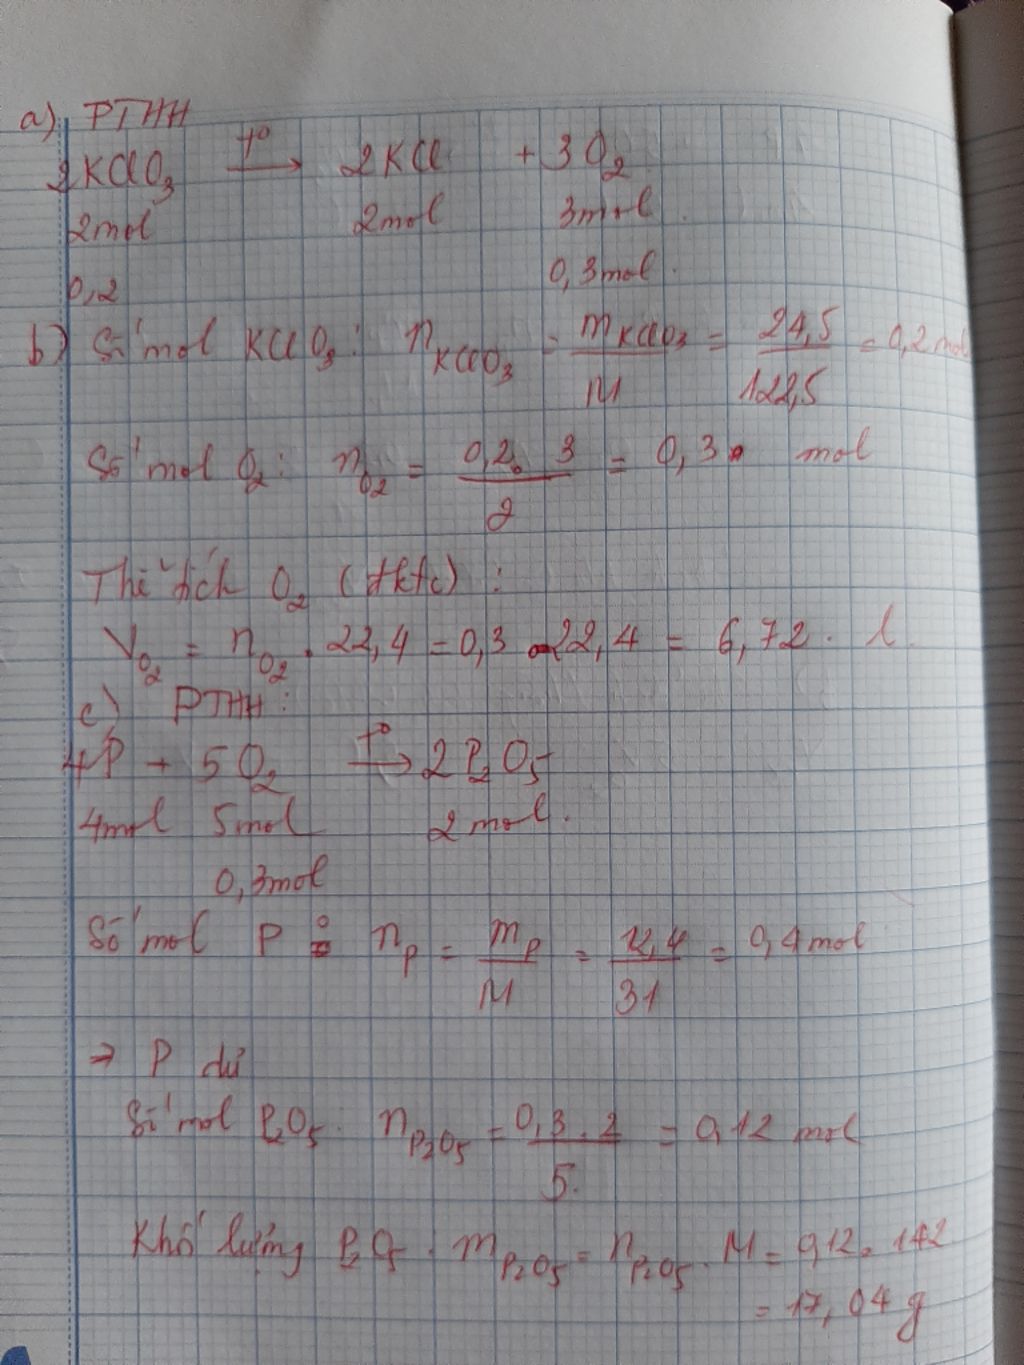 a) PTHH
2KClO3 t° → 2KCl + 3O2
2mol 2mol 3mol
0,2 0,3mol.
b) Số mol KClO3: nKClO3 = mKClO3/M = 24,5/122,5 = 0,2 mol
Số mol O2: nO2 = 0,2. 3/2 = 0,3 mol
Thể tích O2 (đktc) :
VO2 = nO2 . 22,4 = 0,3 . 22,4 = 6,72. l.
c) PTHH:
4P + 5O2 t° → 2P2O5
4mol 5mol 2mol.
0,3mol
Số mol P : nP = mP/M = 12,4/31 = 0,4 mol
→ P dư
Số mol P2O5. nP2O5 = 0,3 . 2/5. = 0,12 mol
Khố lượng P2O5. mP2O5 = nP2O5. M = 0,12. 142
= 17,04 g